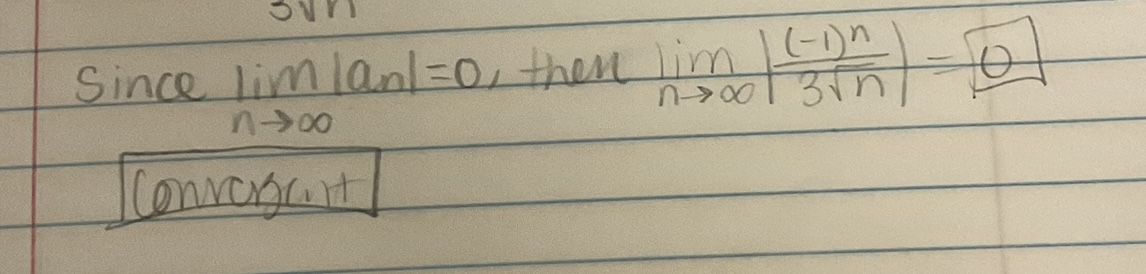 3√n
Since lim |an|=0, then lim |(-1)^n / 3√n| = 0
n→∞ n→∞
Convergent